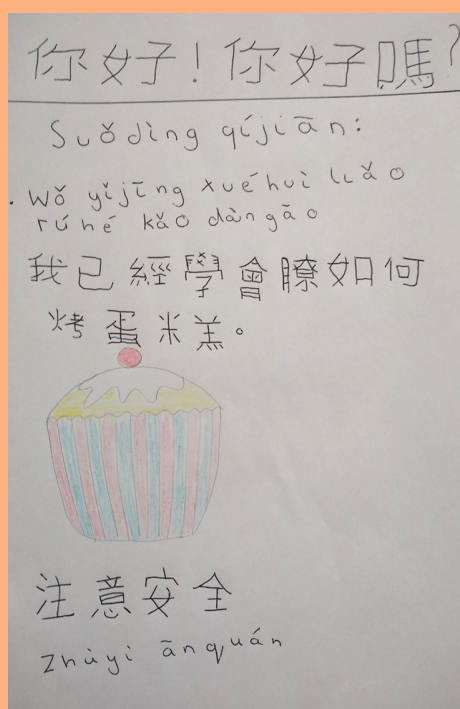 你好！你好嗎？
Suǒdìng qíjiān:
. Wǒ yǐjīng xuéhuì liǎo
rúhé kǎo dàngāo
我已經學會瞭如何
烤蛋米羔。
注意安全
Zhùyì ānquán